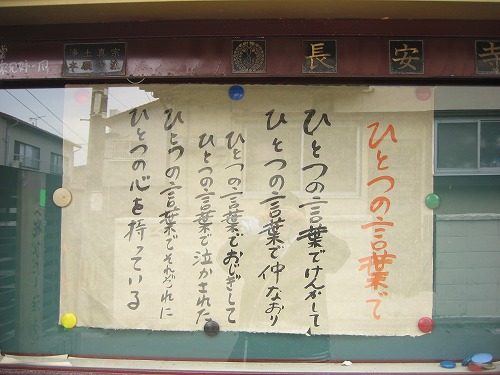 浄土真宗
本願寺派
長安寺
ひとつの言葉で
ひとつの言葉でけんかして
ひとつの言葉で仲なおり
ひとつの言葉でおじぎして
ひとつの言葉で泣かされた
ひとつの言葉でそれぞれに
ひとつの心を持っている